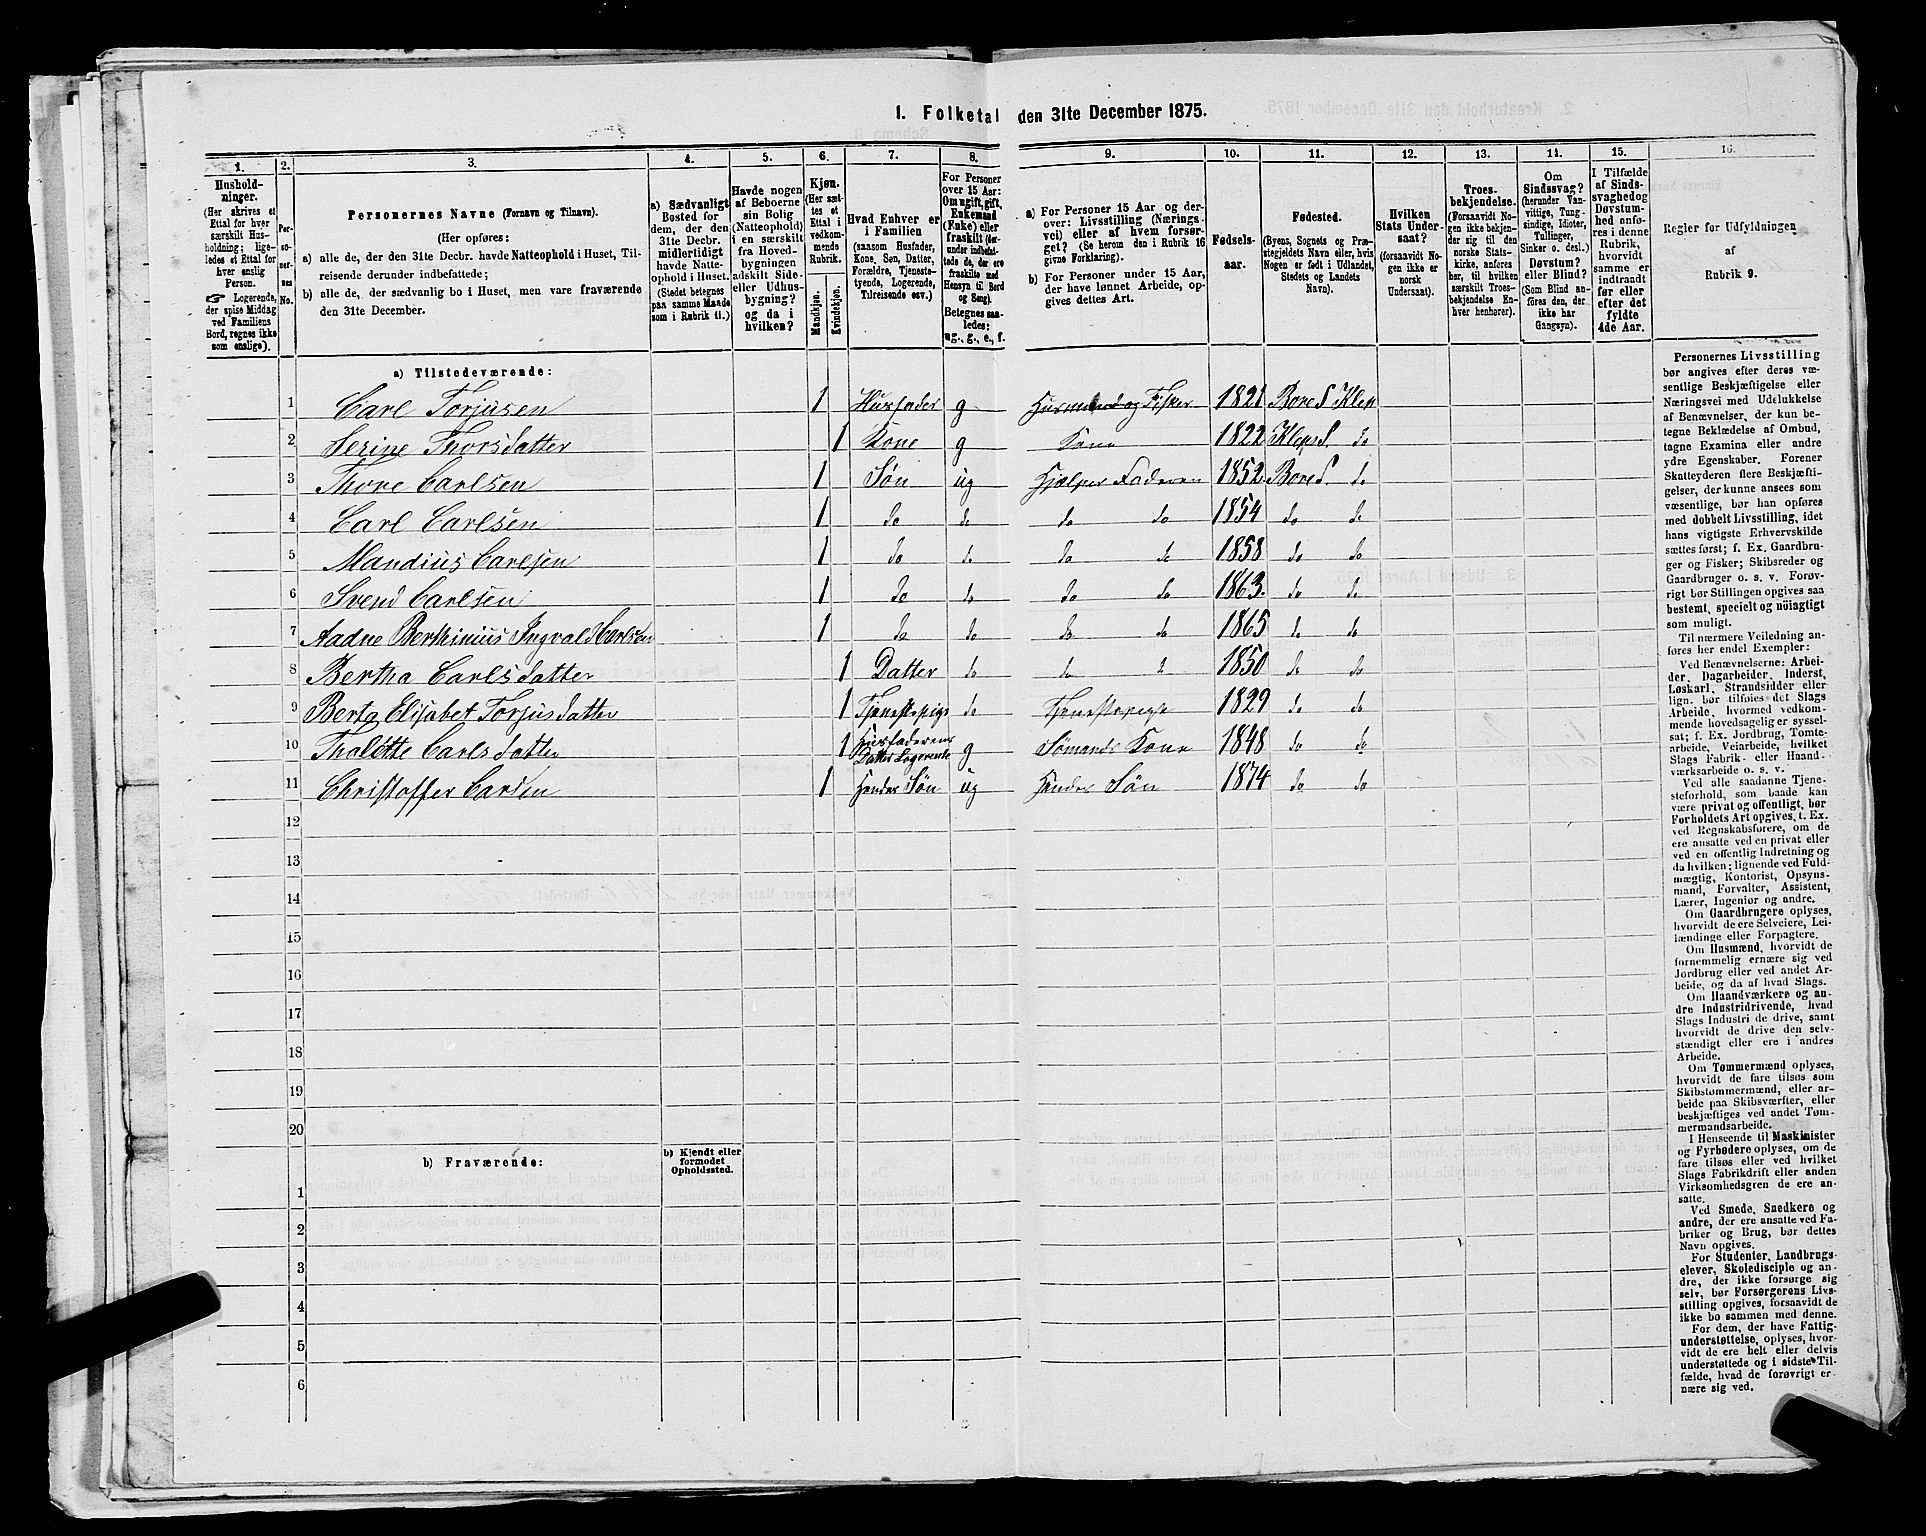 I. Folketal den 31te December 1875.
1. 2. 3. 4. 5. 6. 7. 8. 9. 10. 11. 12. 13. 14. 15. 16.
Hushold-
ninger.
(Her skrives et
Ettal for hver
særskilt Hus-
holdning; lige-
ledes et Ettal
for hver
enslig
Person.
☞ Logerende,
der spise Middag
ved Familiens
Bord, regnes ikke
som enslige).
Per-
so-
ner-
nes
No.
Personernes Navne (Fornavn og Tilnavn).
(Her opføres:
a) alle de, der den 31te Decbr. havde Natteophold i Huset, Til-
reisende derunder indbefattede;
b) alle de, der sædvanlig bo i Huset, men vare fraværende
den 31te December.
a) Sædvanligt
Bosted for
dem, der den
31te Decbr.
midlertidigt
havde Natte-
ophold i Huset.
(Stedet betegnes
paa samme Maade
som i Rubrik 11.)
Havde nogen
af Beboerne
sin Bolig
(Natteophold)
i en særskilt
fra Hoved-
bygningen
adskilt Side-
eller Udhus-
bygning?
og da i
hvilken?
Kjøn.
(Her sæt-
tes et
Ettal i
vedkom-
mende
Rubrik.
Mandkjøn.
Kvindekjøn.
Hvad Enhver er
i Familien
(saasom Husfader,
Kone, Søn, Datter,
Forældre, Tjeneste-
tyende, Logerende,
Tilreisende osv.)
For Personer
over 15 Aar:
Om ugift, gift,
Enkemand
(Enke) eller
fraskilt (der-
under indbefat-
tede de, der ere
fraskilte med
Hensyn til Bord
og Seng).
Betegnes saa-
ledes:
ug., g., e., f.
a) For Personer 15 Aar og der-
over: Livsstilling (Nærings-
vei) eller af hvem forsør-
get? (Se herom den i Rubrik 16
givne Forklaring).
b) For Personer under 15 Aar,
der have lønnet Arbeide, op-
gives dettes Art.
Fødsels-
aar.
Fødested.
(Byens, Sognets og Præ-
stegjeldets Navn eller, hvis
Nogen er født i Udlandet,
Stedets og Landets
Navn).
Hvilken
Stats Under-
saat?
(forsaavidt No-
gen ikke er
norsk
Undersaat).
Troes-
bekjendelse.
(Forsaavidt No-
gen ikke bekjen-
der sig til den
norske Stats-
kirke, anføres
her, til hvilken
særskilt Troes-
bekjendelse En-
hver henhører).
Om
Sindssvag?
(herunder Van-
vittige, Tung-
sindige, Idioter,
Tullinger,
Sinker o. desl.)
Døvstum?
eller Blind?
(Som Blind an-
føres den, der
ikke har
Gangsyn).
I Tilfælde
af Sinds-
svaghed og
Døvstum-
hed anfø-
res i denne
Rubrik,
hvorvidt
samme er
indtraadt
før eller
efter det
fyldte
4de Aar.
Regler for Udfyldningen
af
Rubrik 9.
a) Tilstedeværende:
1 Carl Torjusen 1 Husfader g Husmand og Fisker 1821 Bore S Klep
2 Serine Thorsdatter 1 Kone g Kone 1822 Klep S. do
3 Thore Carlsen 1 Søn ug Hjælper Faderen 1852 Bore S. do
4 Carl Carlsen 1 do do do do 1854 do do
5 Mandius Carlsen 1 do do do do 1858 do do
6 Svend Carlsen 1 do do do do 1863. do do
7 Aadne Berthinius Ingvald Carlsen 1 do do do do 1865 do do
8 Bertha Carlsdatter 1 Datter do do 1850 do do
9 Berta Elisabet Torjusdatter 1 Tjenestepige do Tjenestepige 1829 do do
10 Tholette Carlsdatter 1 Husfaderens
Datter Logerende g Sømands Kone 1848 do do
11 Christoffer Carlsen 1 Hendes Søn ug Hendes Søn 1874 do do
12
13
14
15
16
17
18
19
20
b) Fraværende:
b) Kjendt eller
formodet
Opholdssted.
1
2
3
4
5
6
Personernes Livsstilling
bør angives efter deres væ-
sentlige Beskjæftigelse eller
Næringsvei med Udelukkelse
af Benævnelser, der kun be-
tegne Beklædelse af Ombud,
tagne Examina eller andre
ydre Egenskaber. Forener
Skatteyderen flere Beskjæfti-
gelser, der kunne ansees som
væsentlige, bør han opføres
med dobbelt Livsstilling, idet
hans vigtigste Erhvervskilde
sættes først; f. Ex. Gaardbru-
ger og Fisker; Skibsreder og
Gaardbruger o. s. v. Forøv-
rigt bør Stillingen opgives saa
bestemt, specielt og nøiagtigt
som muligt.
Til nærmere Veiledning an-
føres her endel Exempler:
Ved Benævnelserne: Arbei-
der, Dagarbeider, Inderst,
Løskarl, Strandsidder eller
lign. bør tilføies det Slags
Arbeide, hvormed vedkom-
mende hovedsagelig er syssel-
sat; f. Ex. Jordbrug, Tomte-
arbeide, Veiarbeide, hvilket
Slags Fabrik- eller Haand-
værksarbeide o. s. v.
Ved alle saadanne Tjene-
steforhold, som baade kan
være privat og offentligt, bør
Forholdets Art opgives, t. Ex.
ved Regnskabsførere, om de
ere ansatte ved en privat eller
ved en offentlig Indretning og
da hvilken; lignende ved Fuld-
mægtig, Kontorist, Opsyns-
mand, Forvalter, Assistent,
Lærer, Ingeniør og andre.
Om Gaardbrugere oplyses,
hvorvidt de ere Selveiere, Lei-
lændinge eller Forpagtere.
Om Husmænd, hvorvidt de
fornemmelig ernære sig ved
Jordbrug eller ved andet Ar-
beide, og da af hvad Slags.
Om Haandværkere og an-
dre Industridrivende, hvad
Slags Industri de drive, samt
hvorvidt de drive den selv-
stændigt eller ere i andres
Arbeide.
Om Tømmermænd oplyses,
hvorvidt de fare tilsøs som
Skibstømmermænd, eller ar-
beide paa Skibsværfter, eller
beskjæftiges ved andet Tøm-
mermandsarbeide.
I Henseende til Maskinister
og Fyrbødere oplyses, om de
fare tilsøs eller ved hvilket
Slags Fabrikdrift eller anden
Virksomhedsgren de ere an-
satte.
Ved Smede, Snedkere og
andre, der ere ansatte ved Fa-
briker og Brug, bør dettes
Navn opgives.
For Studenter, Landbrugs-
elever, Skoledisciple og an-
dre, der ikke forsørge sig
selv, bør Forsørgerens Livs-
stilling opgives, forsaavidt de
ikke bo sammen med denne.
For dem, der have Fattig-
understøttelse, oplyses, hvor-
vidt de ere helt eller delvis
understøttede og i sidste Til-
fælde, hvad de forøvrigt er-
nære sig ved.